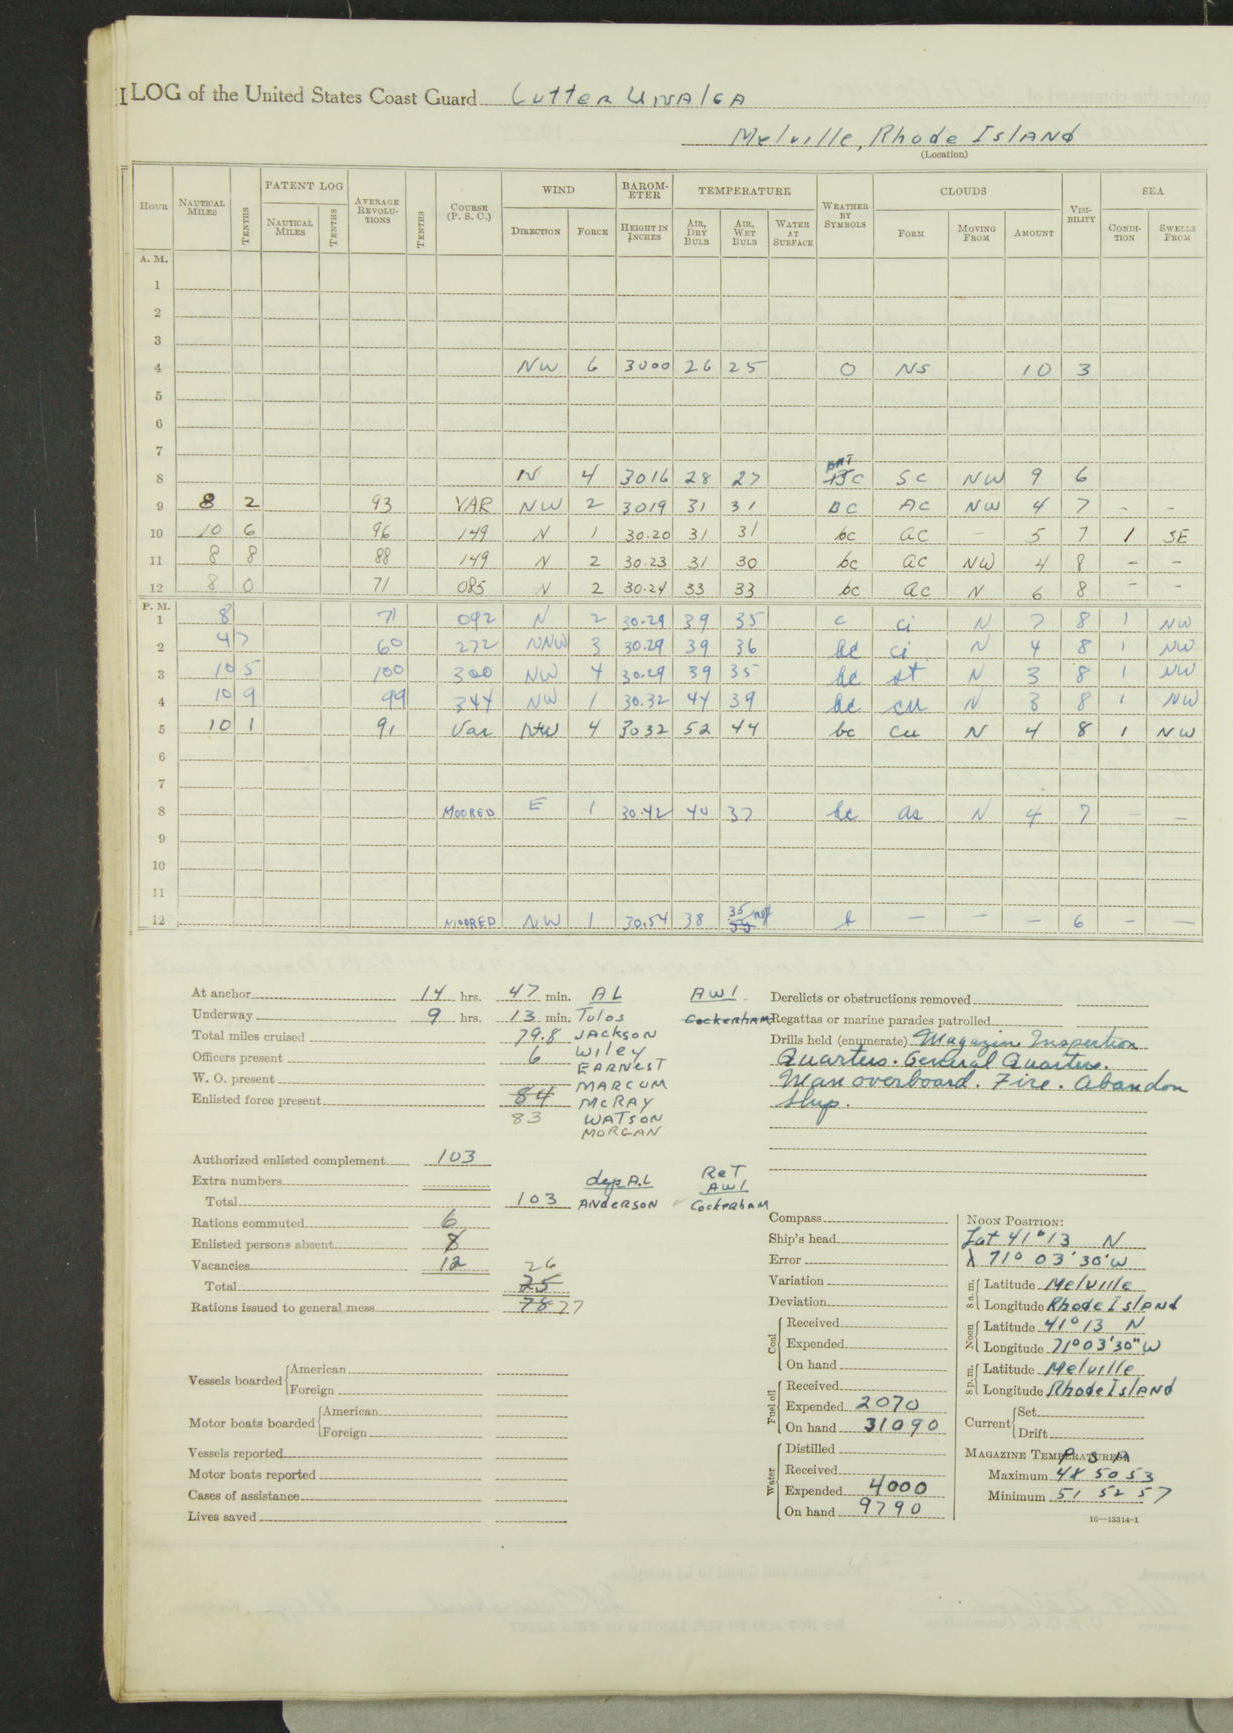 LOG of the United States Coast Guard Cutter UNALGA
Melville, Rhode Island
(Location)
HOUR NAUTICAL MILES TENTHS PATENT LOG NAUTICAL MILES TENTHS AVERAGE REVOLUTIONS TENTHS COURSE (P. S. C.) WIND DIRECTION FORCE BAROMETER HEIGHT IN INCHES TEMPERATURE AIR, DRY BULB AIR, WET BULB WATER AT SURFACE WEATHER BY SYMBOLS CLOUDS FORM MOVING FROM AMOUNT VISIBILITY SEA CONDITION SWELLS FROM
A. M.
1
2
3
4 NW 6 3000 26 25 O NS 10 3
5
6
7
8 N 4 3016 28 27 BC SC NW 9 6
9 8 2 93 VAR NW 2 3019 31 31 BC AC NW 4 7 - -
10 10 6 96 149 N 1 30.20 31 31 bc ac - 5 7 1 SE
11 8 8 88 149 N 2 30.23 31 30 bc ac NW 4 8 - -
12 8 0 71 085 N 2 30.24 33 33 bc ac N 6 8 - -
P. M.
1 8 71 092 N 2 30.29 39 35 c ci N 7 8 1 NW
2 4 7 60 272 NNW 3 30.29 39 36 bc ci N 4 8 1 NW
3 10 5 100 300 NW 4 30.29 39 35 bc st N 3 8 1 NW
4 10 9 99 344 NW 1 30.32 44 39 bc cu N 3 8 1 NW
5 10 1 91 Var NW 4 3032 52 44 bc cu N 4 8 1 NW
6
7
8 MOORED E 1 30.42 40 37 bc as N 4 7 - -
9
10
11
12 MOORED NW 1 30.54 38 35 b - - - 6 - -
At anchor 14 hrs. 47 min. AL AWL
Underway 9 hrs. 13 min. Tulos Cockerham
Total miles cruised 79.8 JACKSON
Officers present 6 Wiley
EARNEST
W. O. present MARCUM
Enlisted force present 84 McRAY
83 WATSON
MORGAN
Authorized enlisted complement 103
Extra numbers dep A.L RET AWL
Total 103 ANDERSON Cockerham
Rations commuted 6
Enlisted persons absent 8
Vacancies 12 26
Total 25
Rations issued to general mess 78 77
Vessels boarded American
Foreign
Motor boats boarded American
Foreign
Vessels reported
Motor boats reported
Cases of assistance
Lives saved
Derelicts or obstructions removed
Regattas or marine parades patrolled
Drills held (enumerate) Magazine Inspection
Quarters. General Quarters.
Man overboard. Fire. Abandon
Ship.
Compass
Ship's head
Error
Variation
Deviation
Coal Received
Expended
On hand
Fuel oil Received
Expended 2070
On hand 31090
Water Distilled
Received
Expended 4000
On hand 9790
NOON POSITION:
Lat 41° 13 N
λ 71° 03' 30" W
8 a. m. Latitude Melville
Longitude Rhode Island
Noon Latitude 41° 13 N
Longitude 71° 03' 30" W
8 p. m. Latitude Melville
Longitude Rhode Island
Current Set
Drift
MAGAZINE TEMPERATURES P S A
Maximum 48 50 53
Minimum 51 52 57
16—13314-1